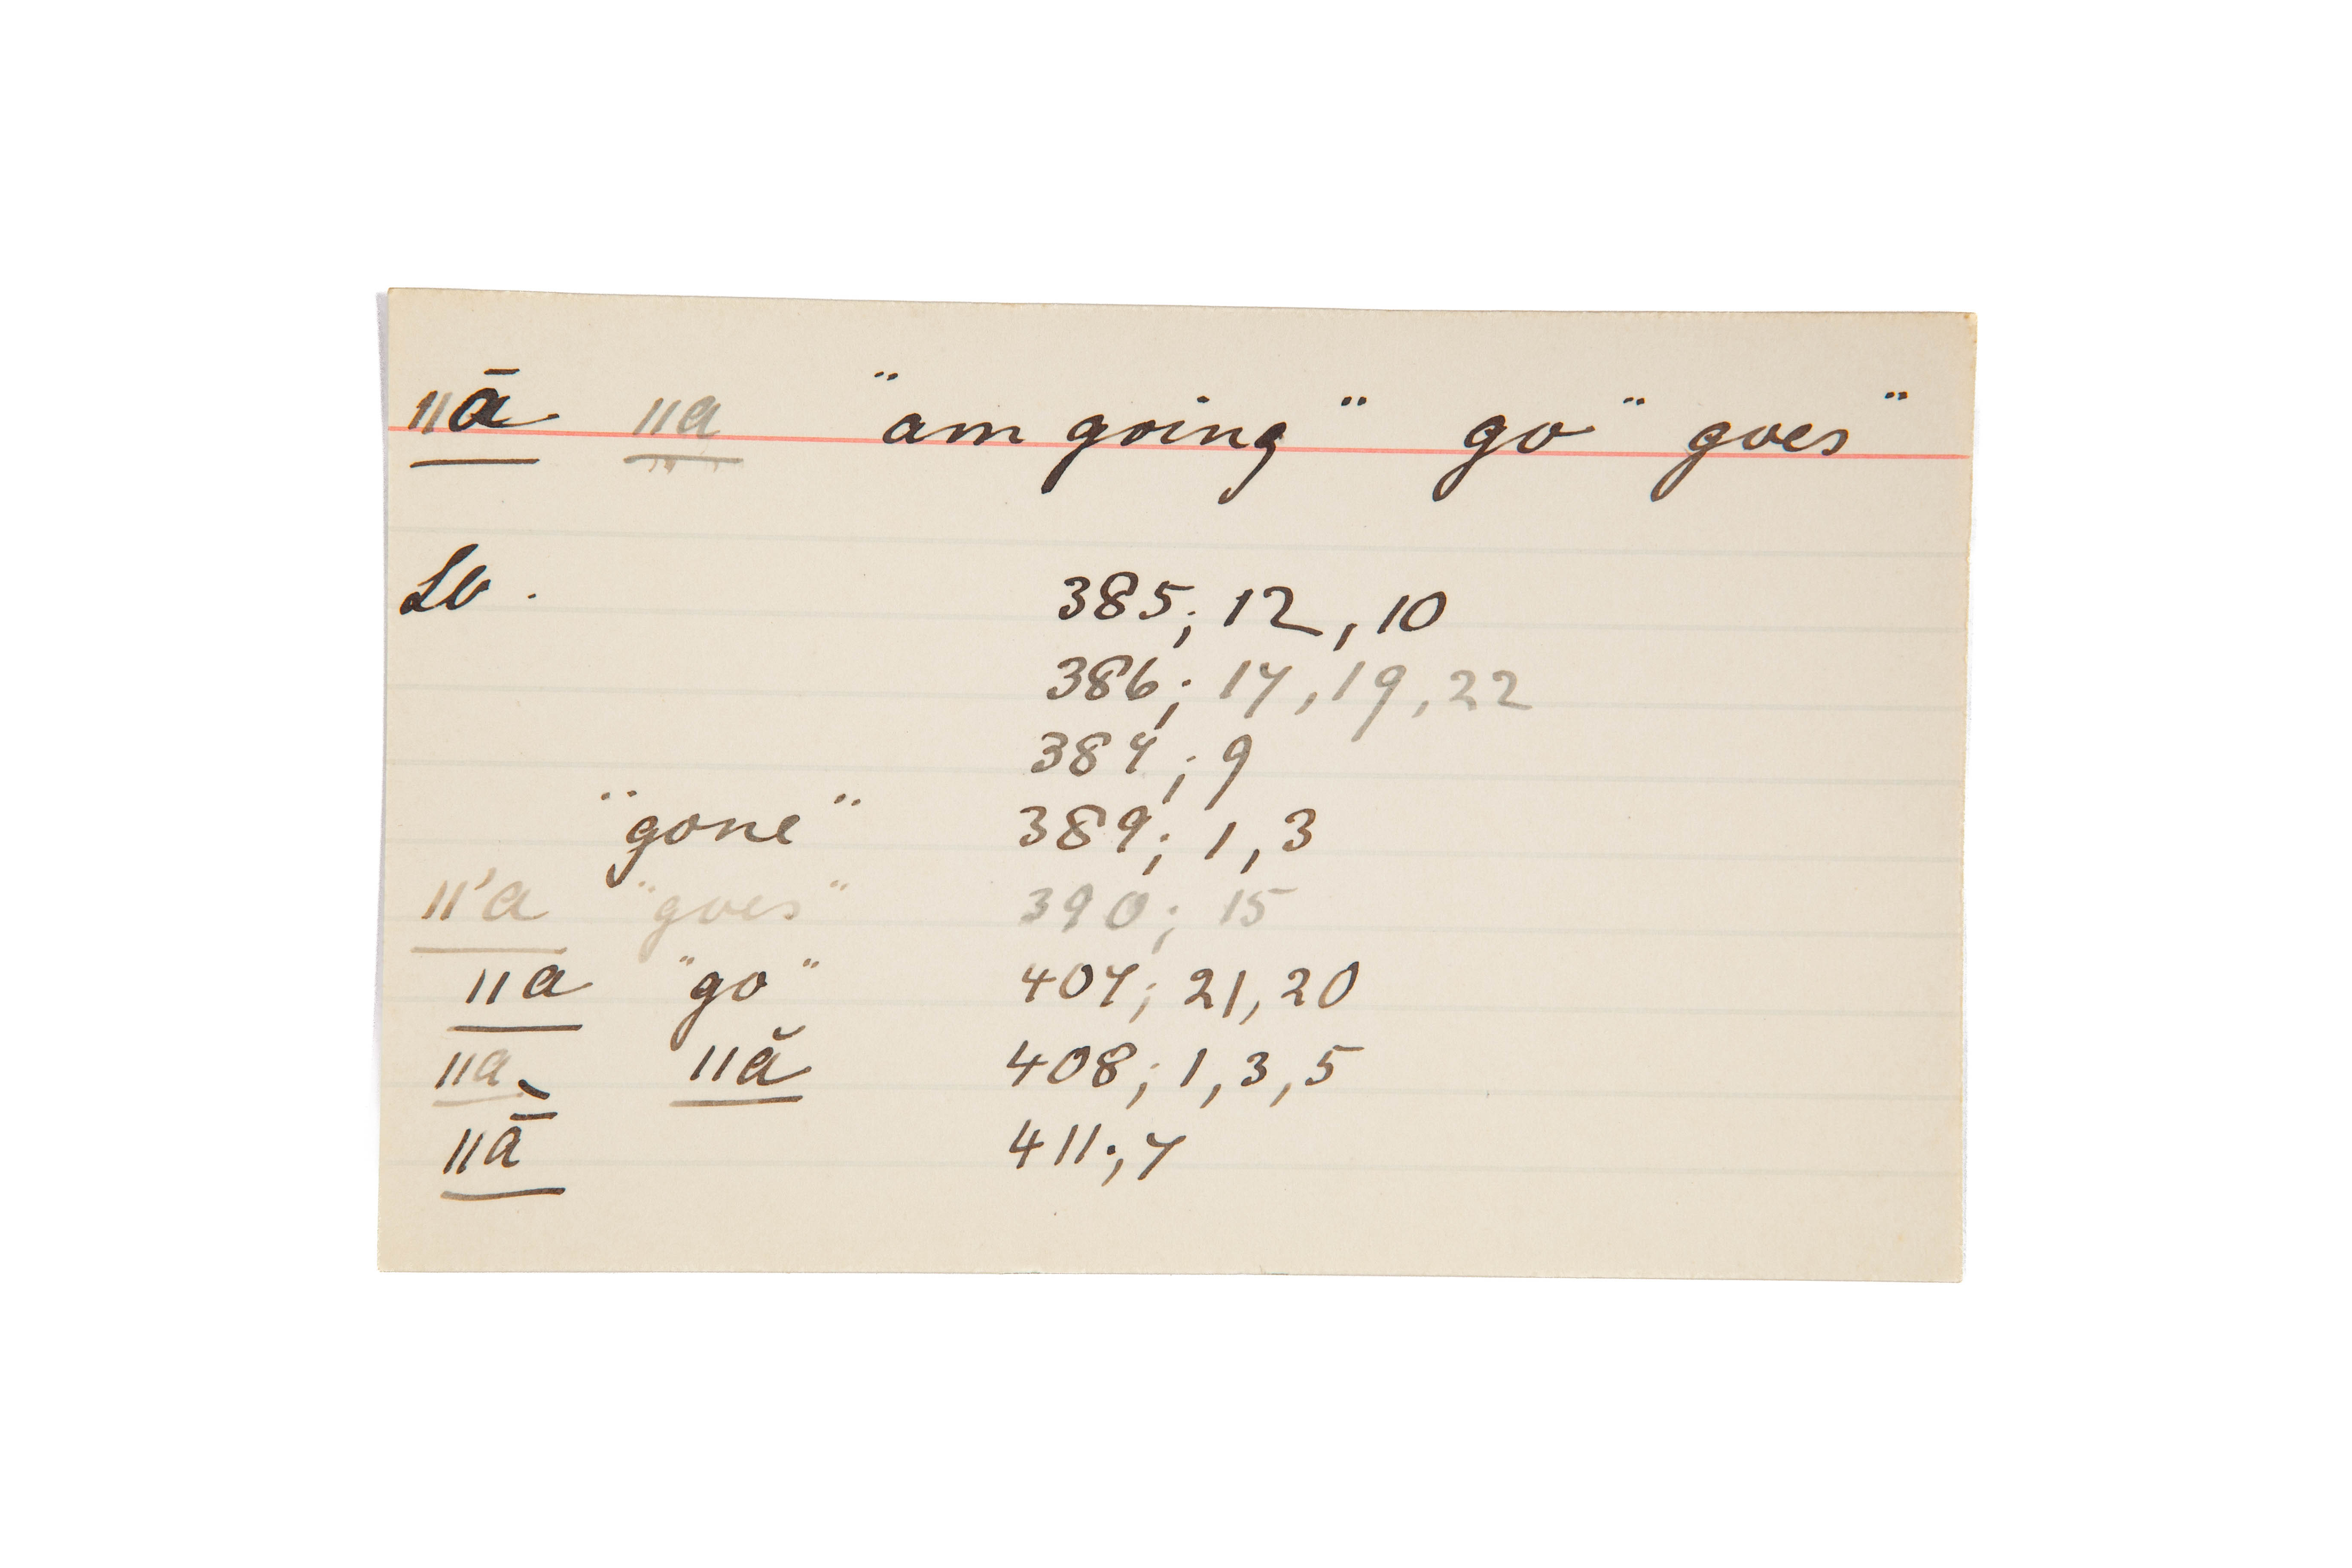 ǁā ǁa "am going" go" goes"
385; 12, 10
386; 17, 19, 22
387; 9
"gone" 389; 1, 3
ǁ'a "goes" 390; 15
ǁa "go" 407; 21, 20
ǁa ǁă 408; 1, 3, 5
ǁā 411; 7